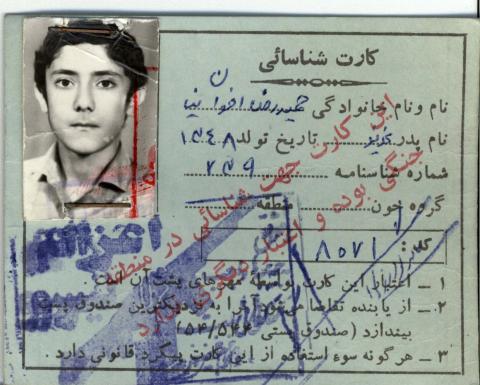 کارت شناسائی
نام و نام خانوادگی حمیدرضا اخوان
نام پدر تاریخ تولد ۱۳۴۸
شماره شناسنامه ۲۴۹
گروه خون منطقه
کد: ۸۵۷۱
این کارت جهت شناسائی در منطقه
جنگی بوده و اعتبار دیگری ندارد
۱ - اعتبار این کارت بواسطه مهرهای پشت آن است
۲ - از یابنده تقاضا می‌شود آنرا به نزدیکترین صندوق پست
بیندازد (صندوق پستی
۳ - هرگونه سوء استفاده از این کارت پیگرد قانونی دارد .